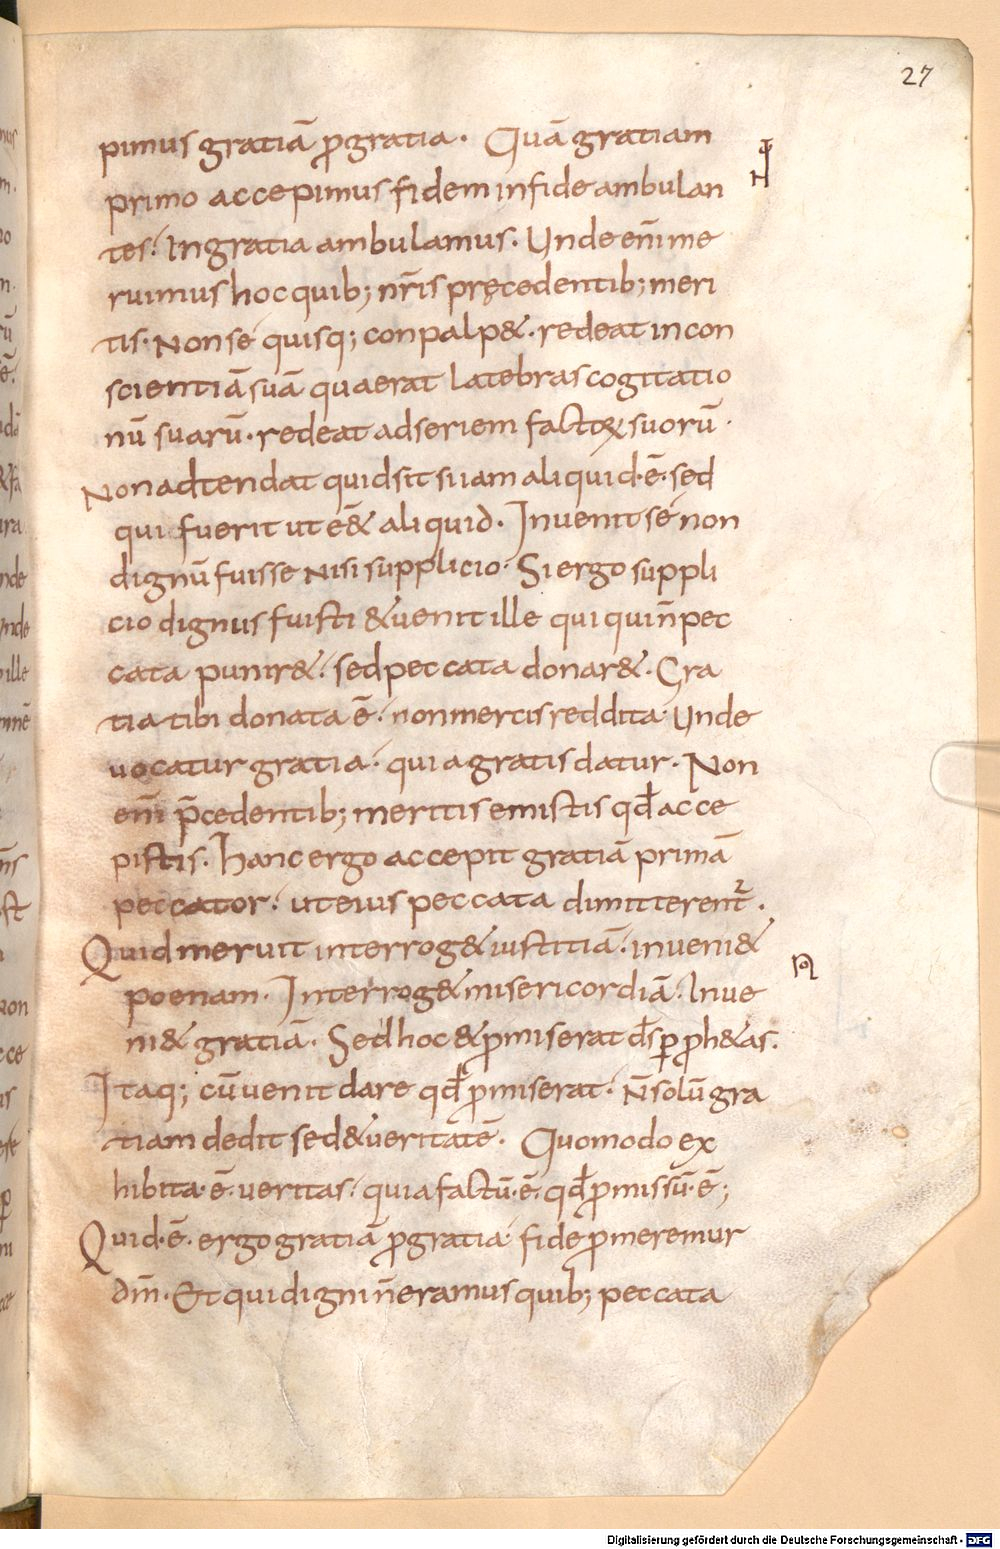 27
pimus gratiā ꝓ gratia. Quā gratiam
primo accepimus fidem in fide ambulan
tes. In gratia ambulamus. Unde eni̅ me
ruimus hoc quib; nr̄is pręcedentib; meri
tis. Non se quisq; con palp&. redeat in con
scientiā suā quaerat latebras cogitatio
nū suarū. redeat ad seriem factoꝝ suorū.
Non adtendat quid sit si iam aliquid .ē. sed
qui fuerit ut ēē& aliquid. Inuenit se non
dignū fuisse nisi supplicio. Si ergo suppli
cio dignus fuisti & uenit ille qui qui n̄ pec
cata punir& sed peccata donar&. Gra
tia tibi donata ē. non mercis reddita. Unde
uocatur gratia. quia gratis datur. Non
eni̅ p̄cedentib; meritis emistis qđ acce
pistis. Hanc ergo accepit gratiā primā
peccator. ut eius peccata dimitterent̄.
Quid meruit interrog& iustitiā. inueni&
poenam. Interrog& misericordiā. Inue
ni& gratiā. Sed hoc & ꝓmiserat ds̄ ꝑ ꝓph&as.
Itaq; cū uenit dare qđ ꝓmiserat. n̄ solū gra
tiam dedit sed & ueritatē. Quomodo ex
hibita .ē. ueritas. quia factū .ē. qđ ꝓmissū .ē.;
Quid .ē. ergo gratiā ꝓ gratia fide ꝓmeremur
dm̄. Et qui digni n̄ eramus quib; peccata
Digitalisierung gefördert durch die Deutsche Forschungsgemeinschaft - DFG